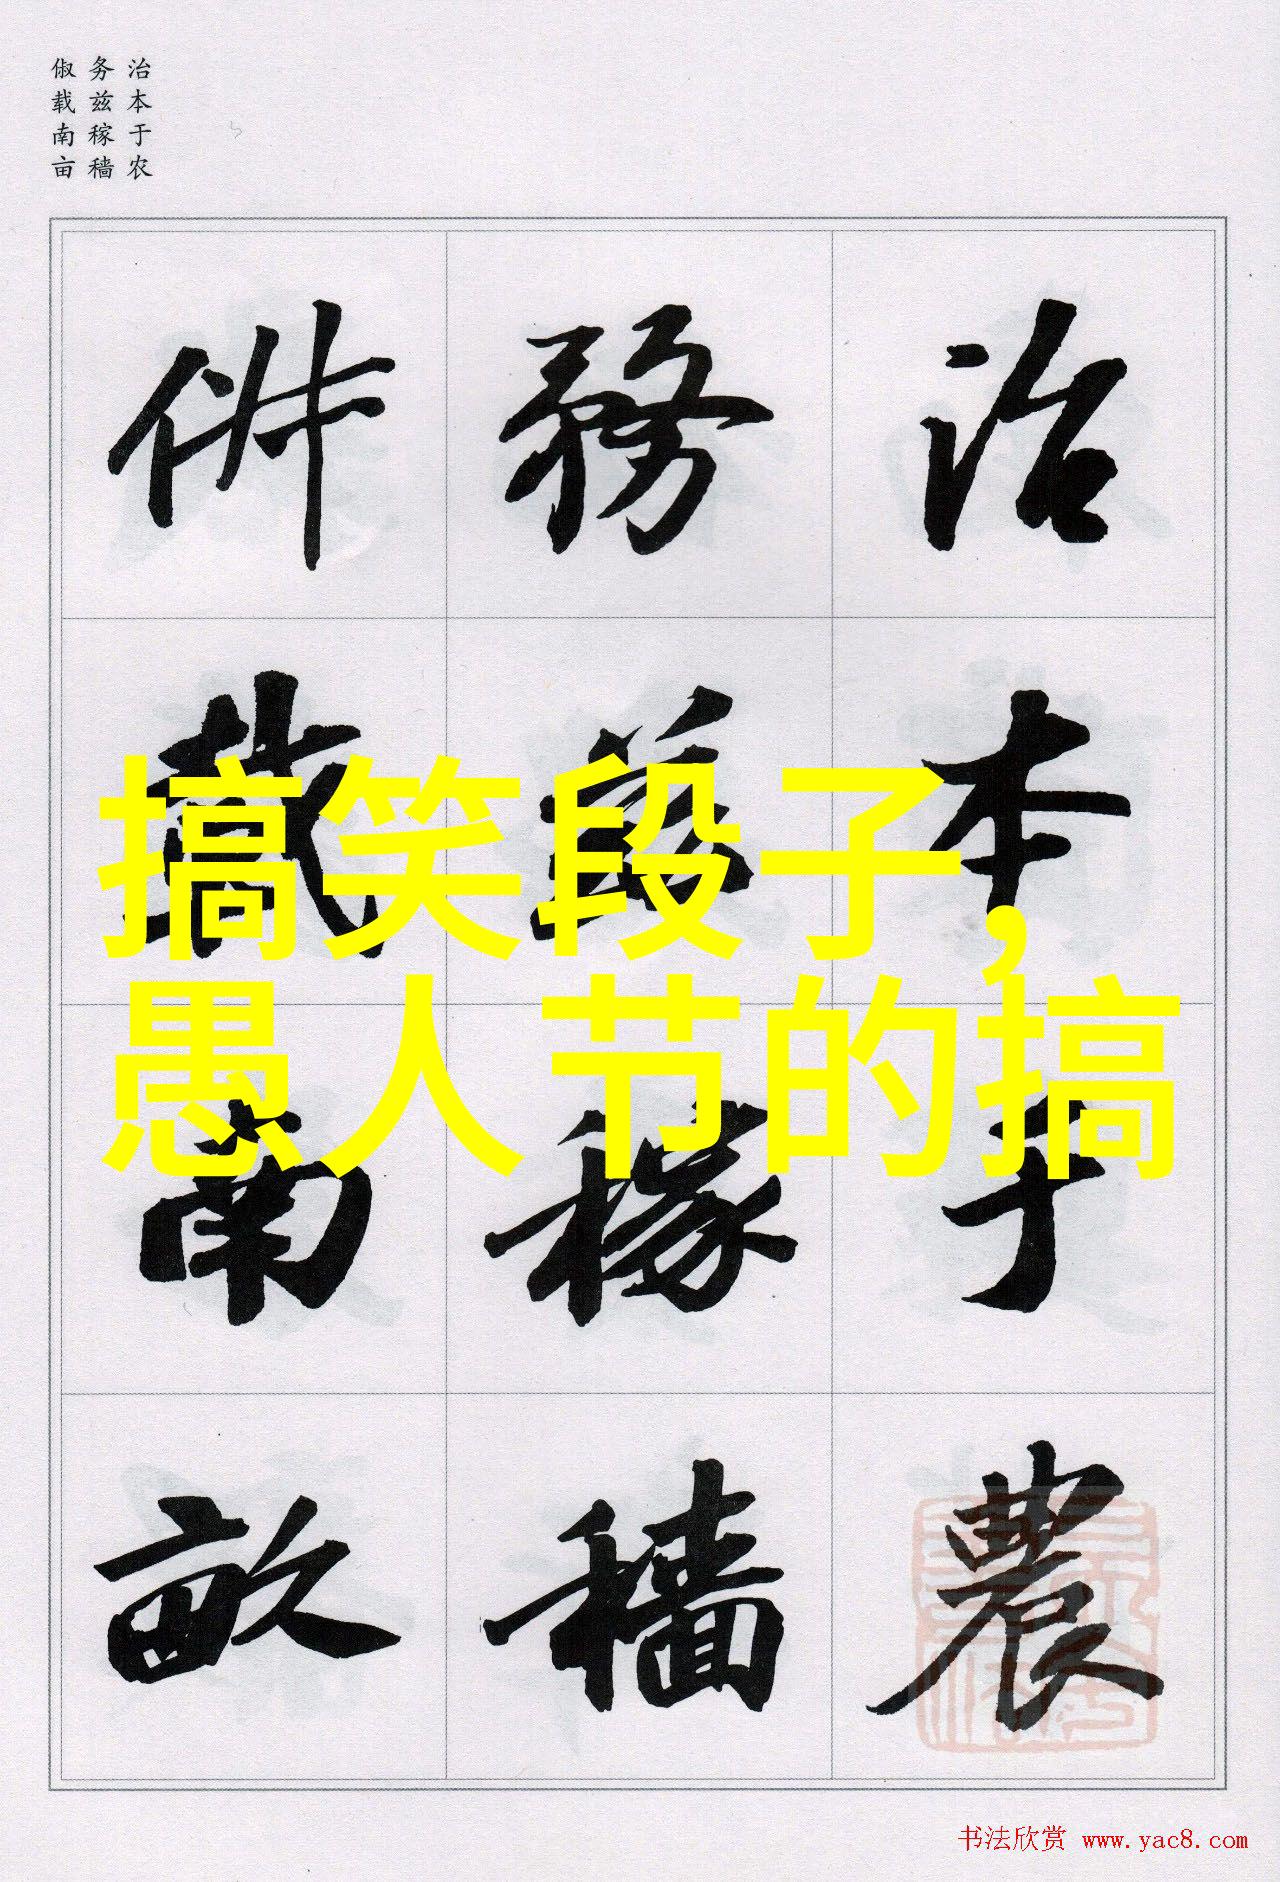 治本于农
务兹稼穑
俶载南亩
治本于農
務茲稼穡
俶載南畝
搞笑段子，
愚人节的搞
书法欣赏 www.yac8.com